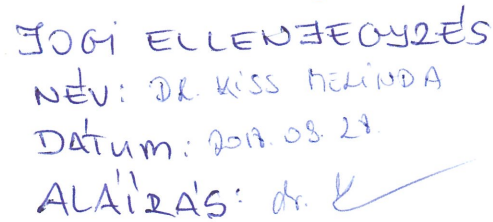 JOGI ELLENJEGYZÉS
NÉV: DR. KISS MELINDA
DÁTUM: 2018. 09. 28.
ALÁÍRÁS: dr. K